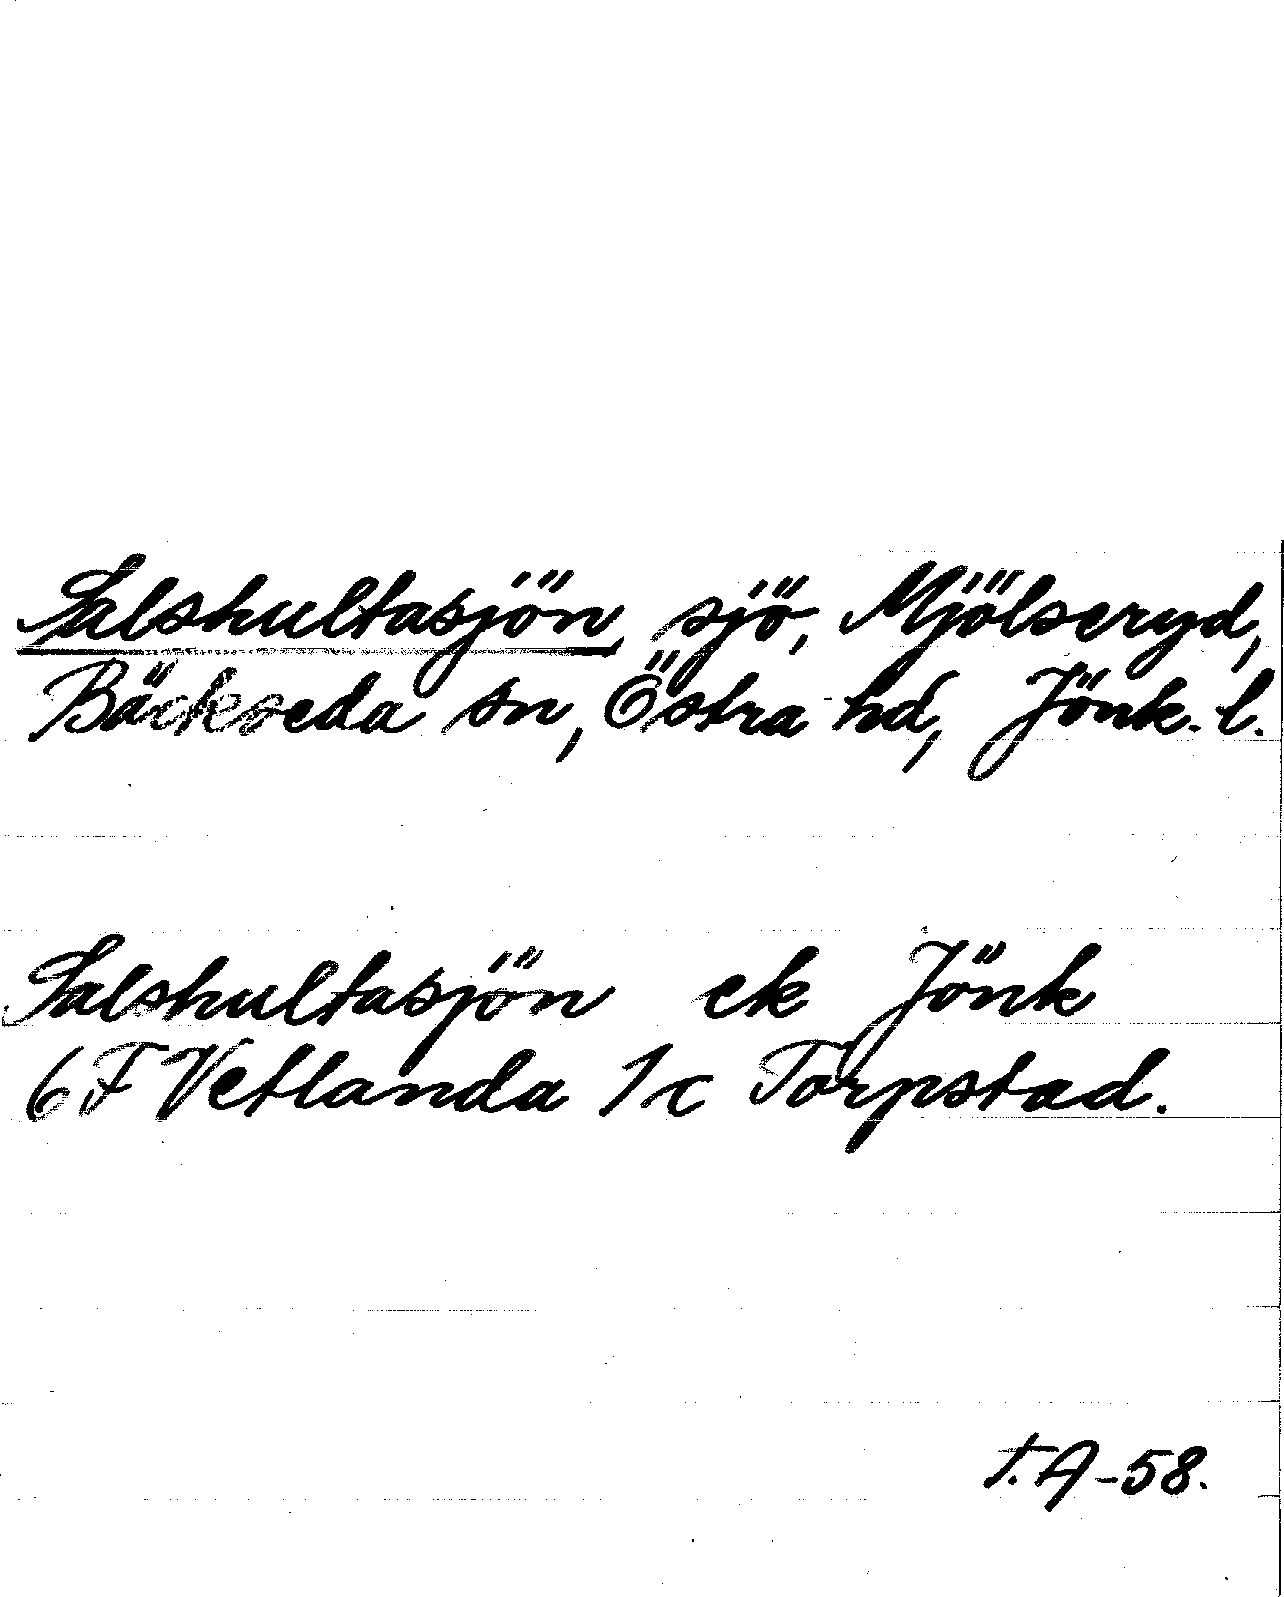 Salshultasjön, sjö, Mjölseryd,
Bäckseda sn, Östra hd, Jönk. l.
Salshultasjön ek Jönk
6 F Vetlanda 1 c Torpstad.
T.A-58.